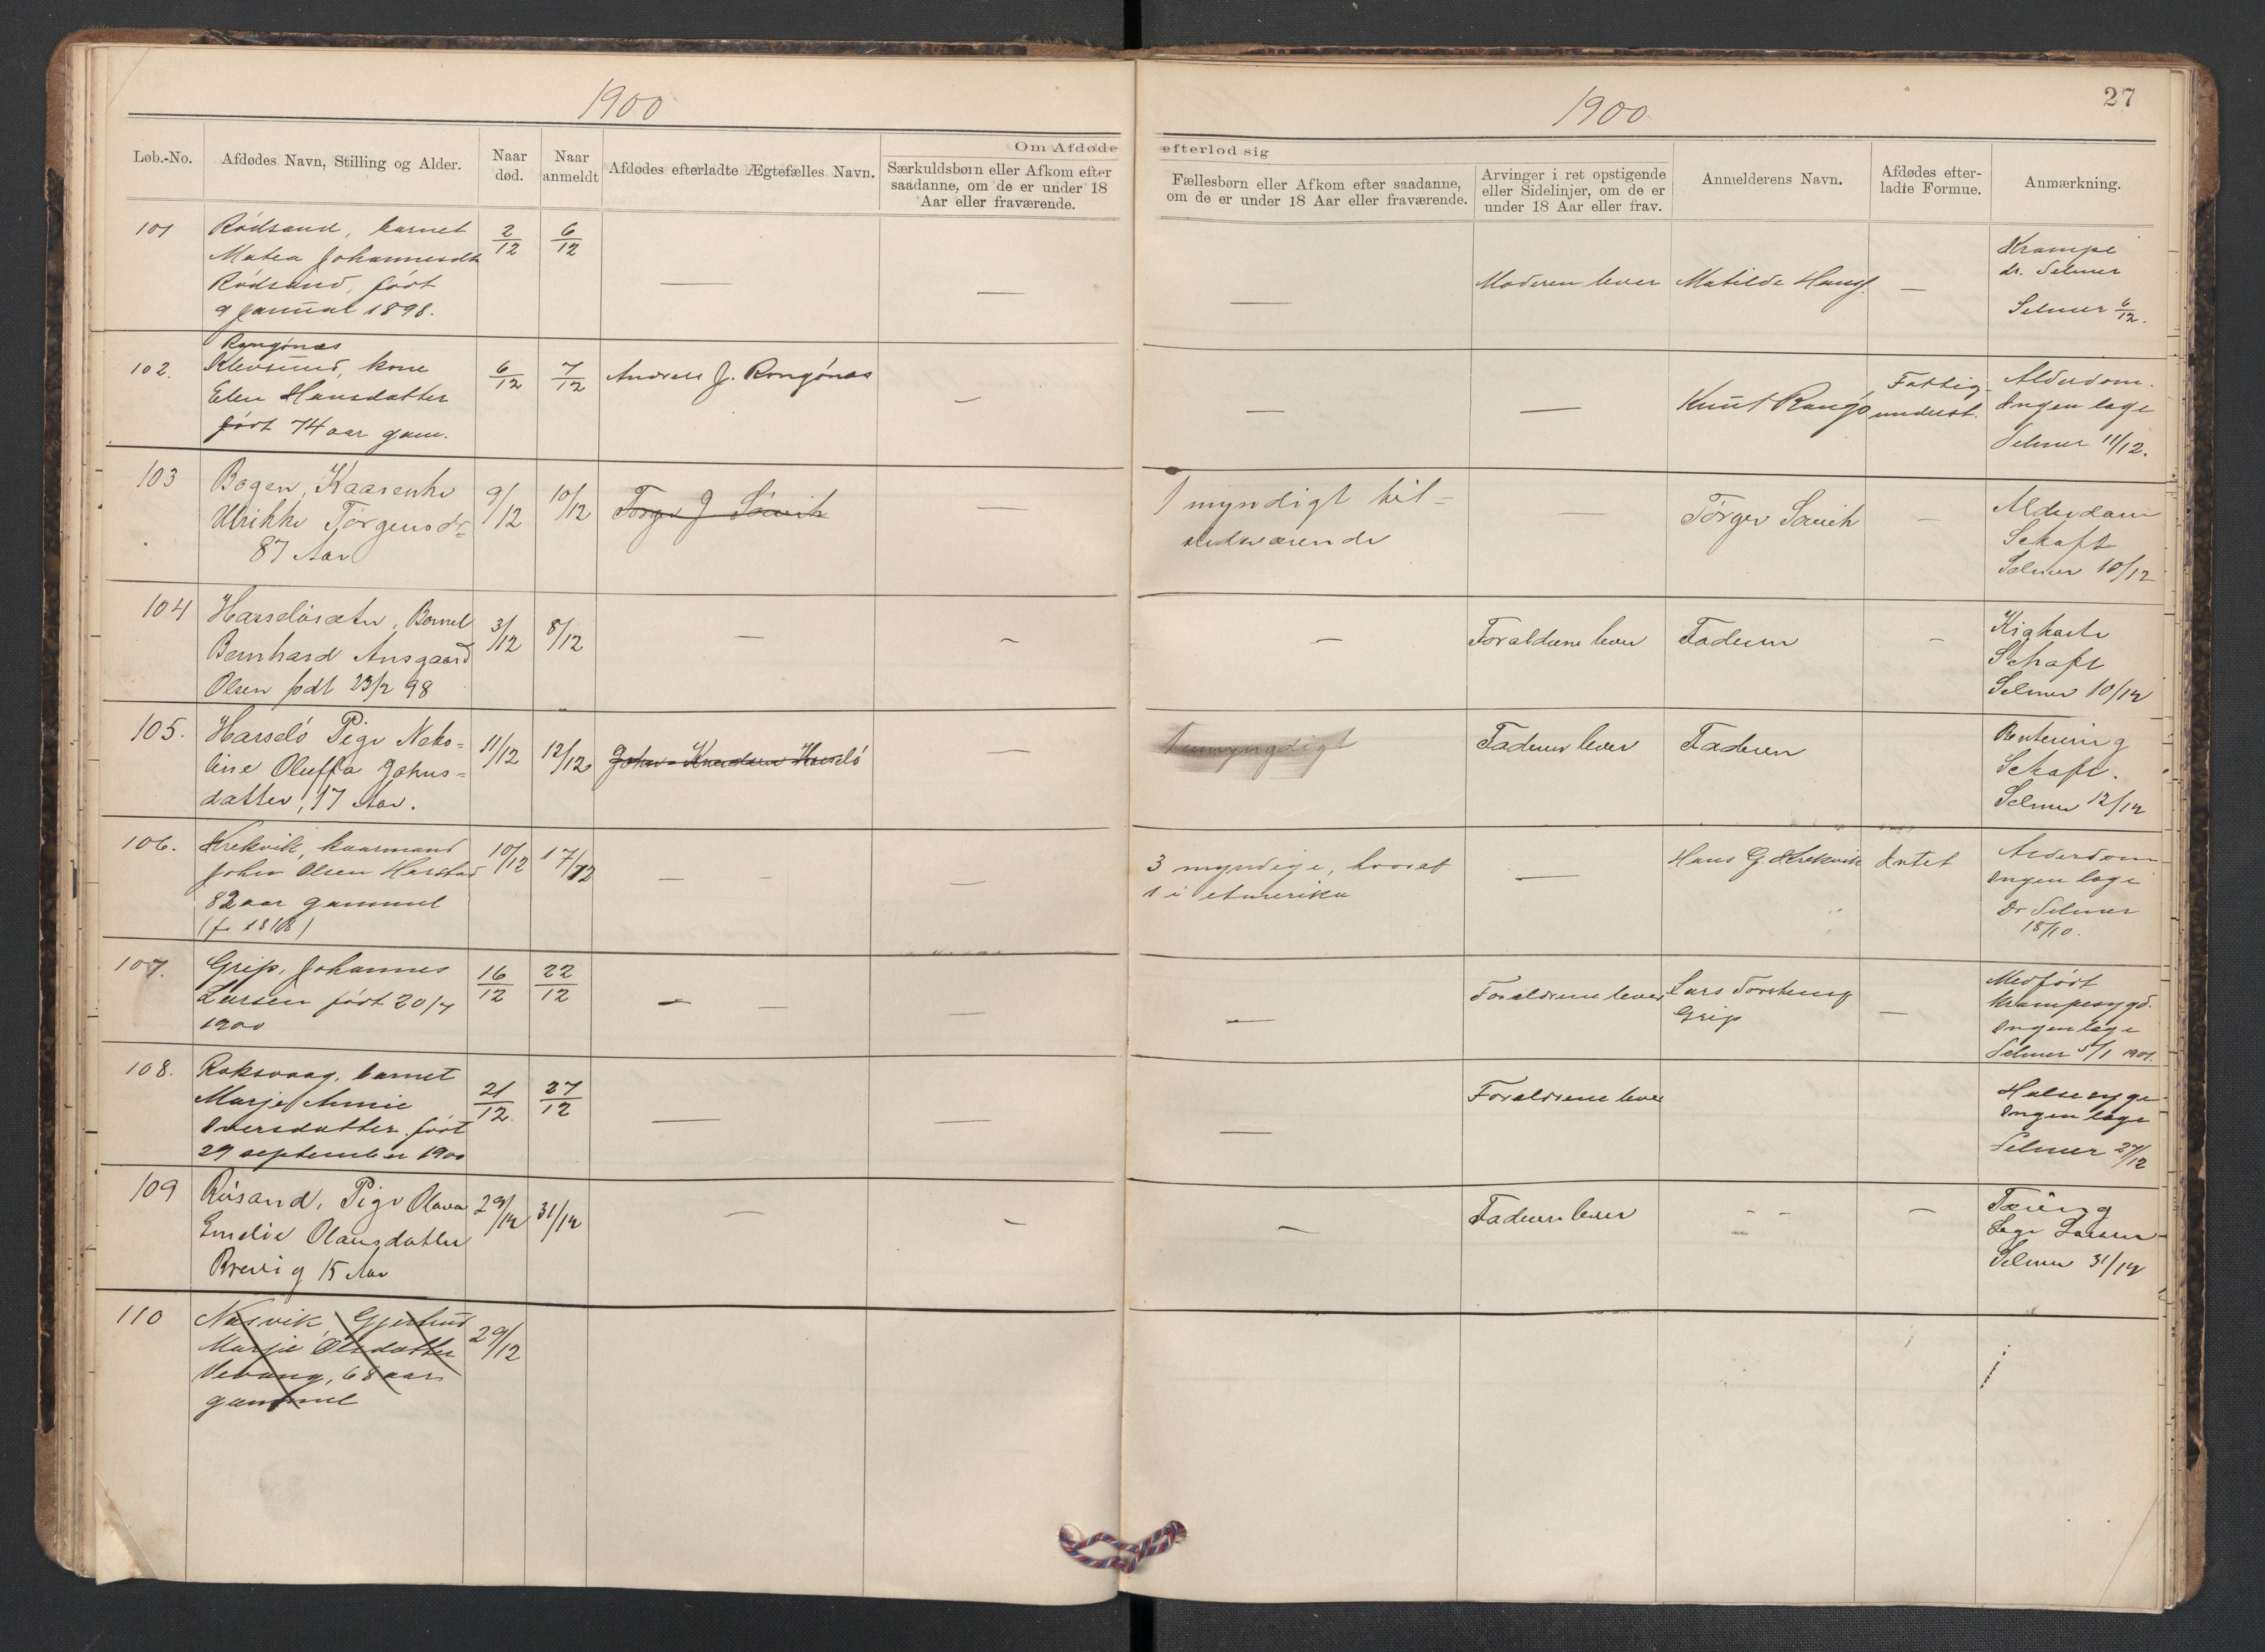 1900
1900
27
Løb.-No.
Afdødes Navn, Stilling og Alder.
Naar
død.
Naar
anmeldt
Afdødes efterladte Ægtefælles Navn.
Om Afdøde
efterlod sig
Særkuldsbørn eller Afkom efter
saadanne, om de er under 18
Aar eller fraværende.
Fællesbørn eller Afkom efter saadanne,
om de er under 18 Aar eller fraværende.
Arvinger i ret opstigende
eller Sidelinjer, om de er
under 18 Aar eller frav.
Anmelderens Navn.
Afdødes efter-
ladte Formue.
Anmærkning.
101
Rødsand, barnet
Matea Johannesdt
Rødsand, født
9 januar 1898.
2/12
6/12
—
—
—
Moderen lever
Matilde Hansf.
—
Krampe
dr. Selmer
Selmer 6/12.
102.
Rongønæs
Klevsund, kone
Elen Hansdatter
født 74 aar gam.
6/12
7/12
Andreas J. Rongønæs
—
—
—
Knut Rangø
Fattig-
underst.
Alderdom.
Ingen læge
Selmer 11/12.
103
Bogen, Kaarenke
Ulrikke Törgensdr
87 Aar
9/12
10/12
Törger J. Sævik
—
1 myndigt til-
stedeværende
—
Törger Sævik
—
Alderdom
Schaft
Selmer 10/12
104
Harseløsæter, Barnet
Bernhard Ansgaard
Olsen født 23/2 98
3/12
8/12
—
—
—
Forældrene lever
Faderen
—
Kighoste
Schaft
Selmer 10/12
105.
Harselö Pige Neko-
line Oluffa Johns-
datter, 17 Aar.
11/12
12/12
John Knudsen Harselö
—
1 umyngdigt
Faderen lever
Faderen
Schaft.
Selmer 12/12
106.
Krekvik, kaarmand
John Olsen Harstad
82 aar gammel
(f. 1818)
10/12
17/12
—
—
—
3 myndige, hvoraf
1 i Amerika
—
Hans G Krekvik
Intet
Alderdom
Ingen læge
Dr Selmer
18/10.
107.
Grip, Johannes
Larsen født 20/7
1900
16/12
22/12
—
—
—
—
Forældrene lever
Lars Torstensf
Grip
—
Medført
krampesygd.
Ingen læge
Selmer 5/1 1901.
108.
Roksvaag, barnet
Marje Annie
Iversdatter født
29 september 1900
21/12.
27/12
—
—
—
Forældrene lever
Halsesyge
Ingen læge
Selmer 27/12
109
Rösand, Pige Olava
Emelie Olausdatter
Brevig 15 Aar
29/12
31/12
—
—
—
Faderen lever
- -
—
Tæring
Læge Larsen
Selmer 31/12
110
Næsvik, Gjertrud
Marje Olsdatter
Vevang, 68 aar
gammel
29/12